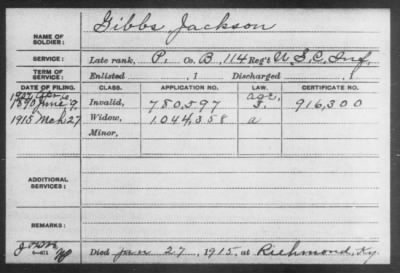 Gibbs Jackson
NAME OF SOLDIER:
SERVICE: Late rank, P. Co. B, 114 Reg't U.S.C. Inf.
TERM OF SERVICE: Enlisted , 1 Discharged , 1
DATE OF FILING. CLASS. APPLICATION NO. LAW. CERTIFICATE NO.
age
1890 June 9. Invalid, 780,597 916,300
1915 Mch 27 Widow, 1,044,358 a
Minor,
ADDITIONAL SERVICES:
REMARKS:
Died Jan 27, 1915, at Richmond, Ky.